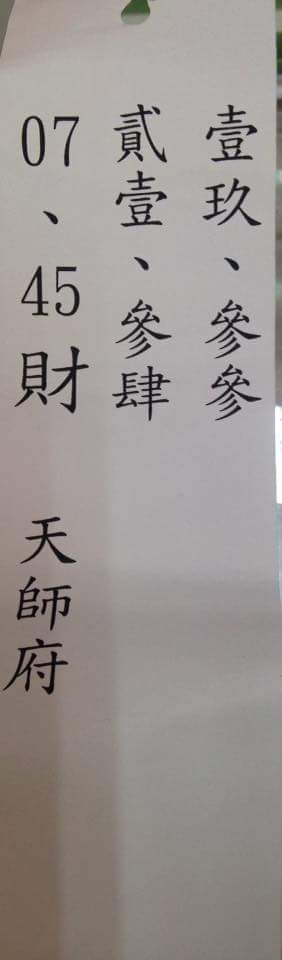 壹玖、參參
貳壹、參肆
07、45財 天師府